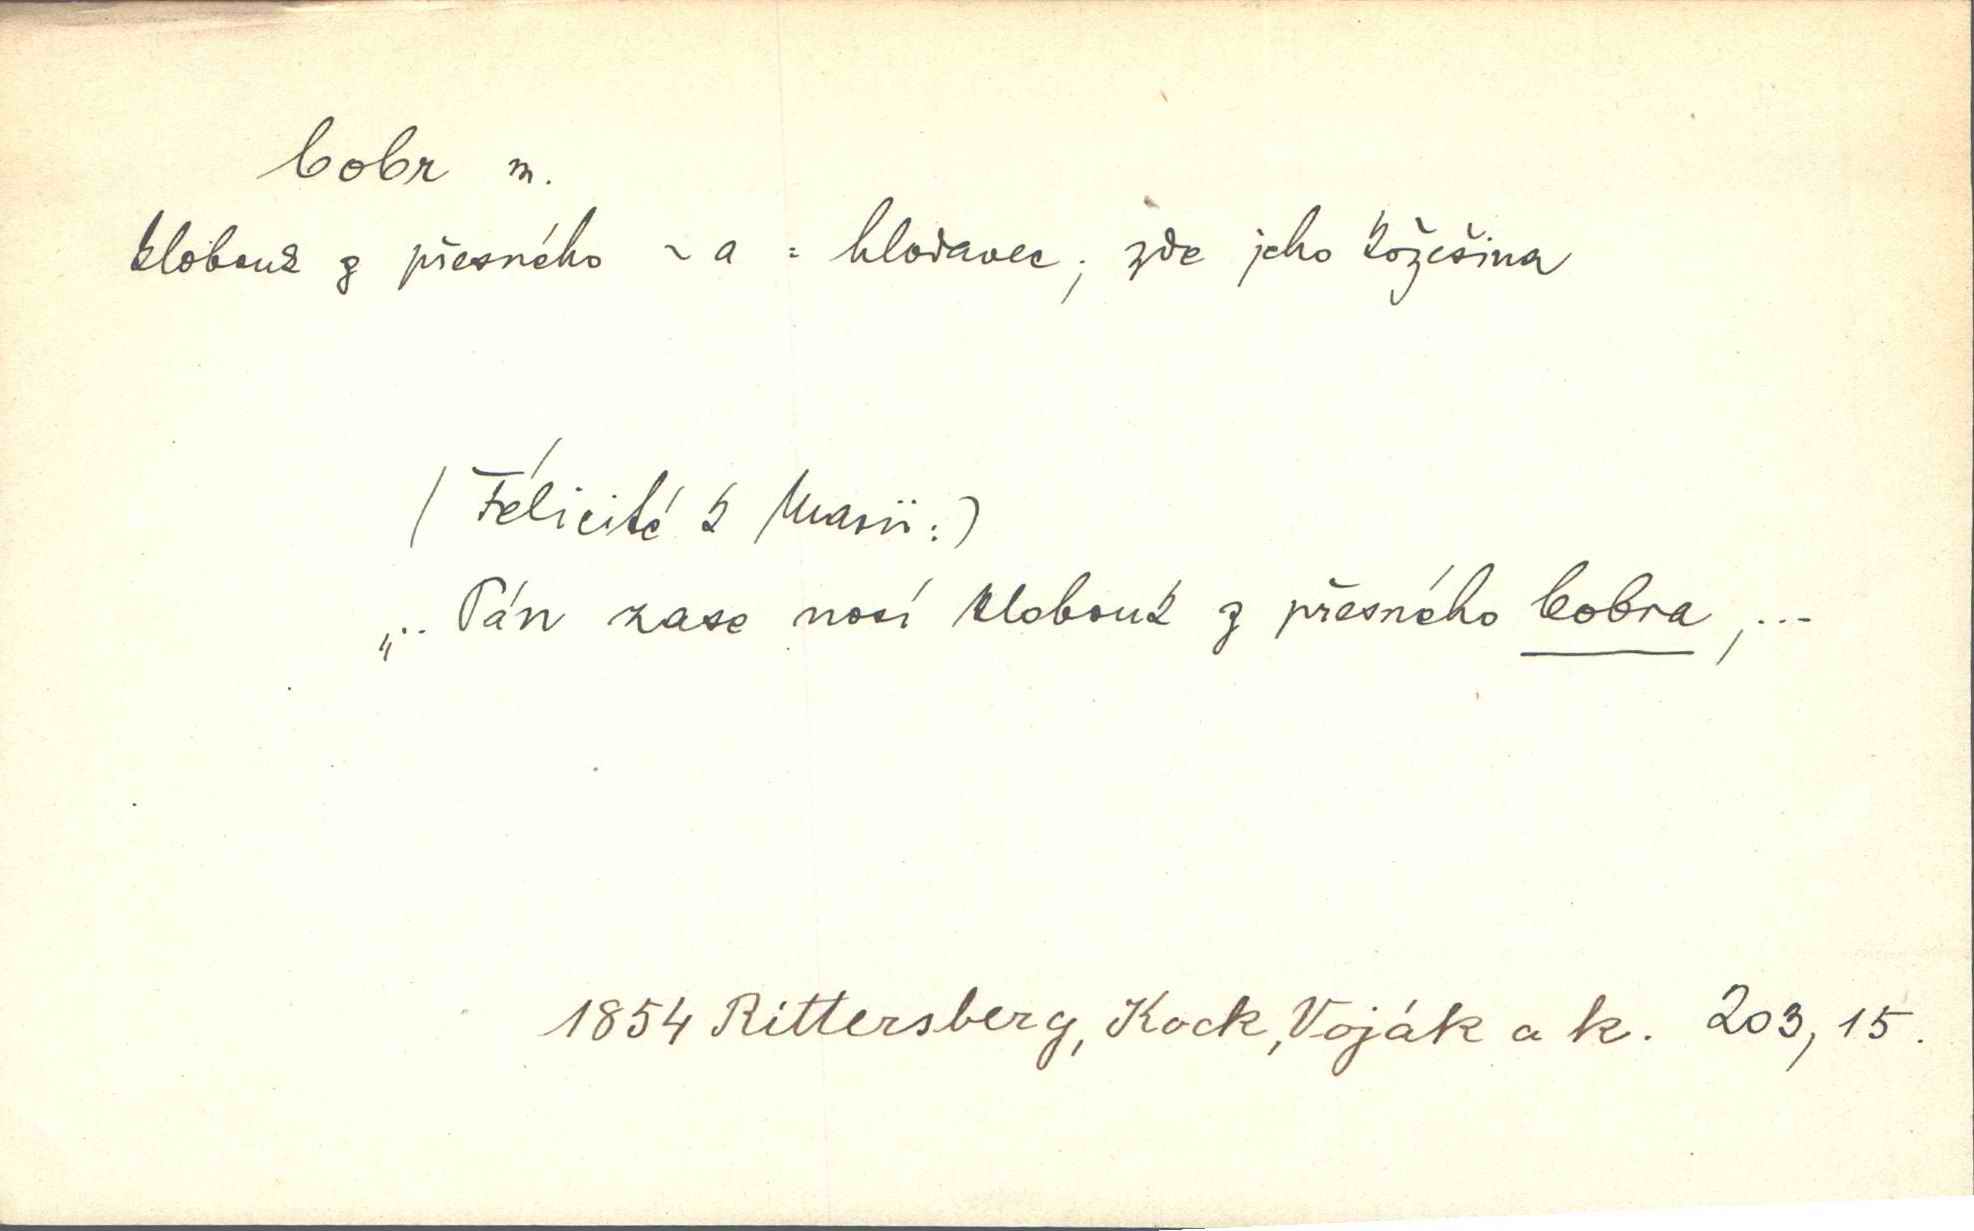 bobr m.
klobouk z přesného ~ a = hlodavec; zde jeho kožešina
(Félicité k Marii:)
„.. Pán zase nosí klobouk z přesného bobra, ...
1854 Rittersberg, Kock, Voják a k. 203, 15.